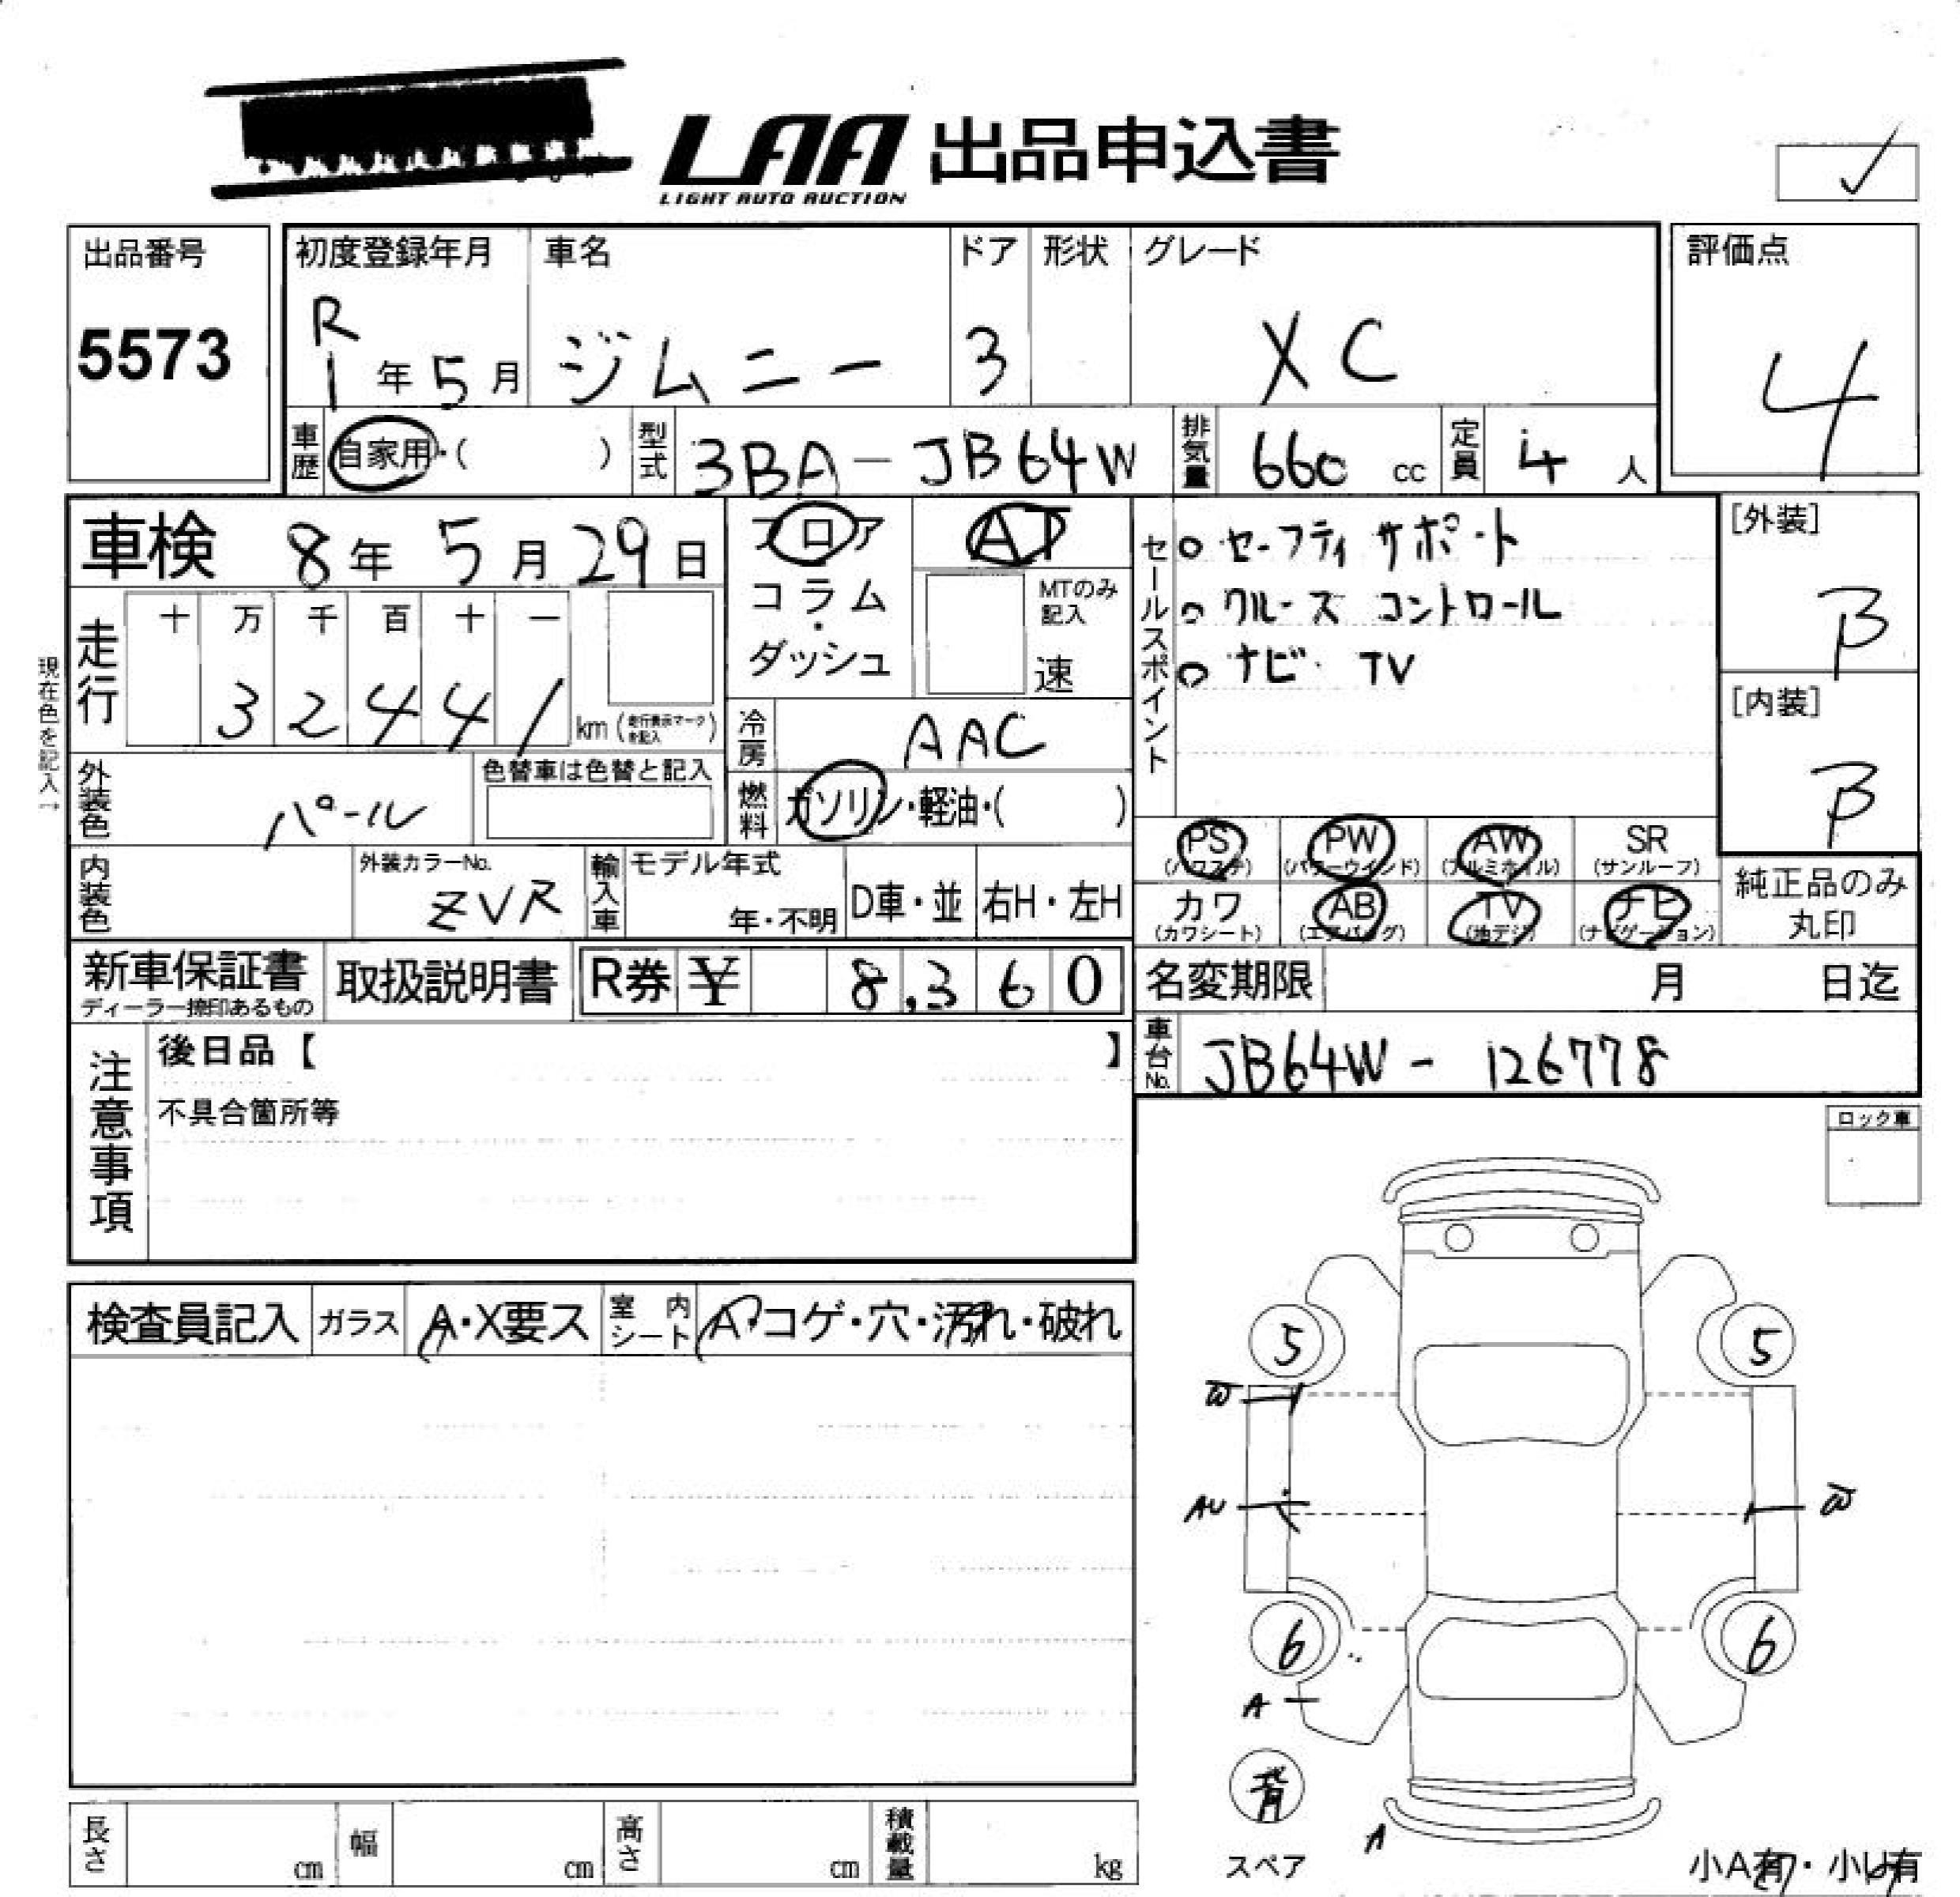 LAA 出品申込書
LIGHT AUTO AUCTION
✓
出品番号
5573
初度登録年月
R
1年5月
車名
ジムニー
ドア
3
形状
グレード
XC
評価点
4
車歴
自家用・( )
型式
3BA-JB64W
排気量
660 cc
定員
4 人
車検 8年 5月 29日
フロア
コラム
・
ダッシュ
AT
MTのみ
記入
速
セールスポイント
○ セーフティサポート
○ クルーズ コントロール
○ ナビ・TV
[外装]
B
[内装]
B
現在色を記入→
走行
十 万 千 百 十 一
3 2 4 4 1
km (走行表示マークを記入)
冷房
AAC
燃料
ガソリン・軽油・( )
外装色
パール
色替車は色替と記入
内装色
外装カラーNo.
ZVR
輸入車
モデル年式
年・不明
D車・並
右H・左H
PS
(パワステ)
PW
(パワーウインド)
AW
(アルミホイル)
SR
(サンルーフ)
カワ
(カワシート)
AB
(エアバッグ)
TV
(地デジ)
ナビ
(ナビゲーション)
純正品のみ
丸印
新車保証書
ディーラー捺印あるもの
取扱説明書
R券 ¥ 8,360
名変期限 月 日迄
車台No.
JB64W - 126778
注意事項
後日品【 】
不具合箇所等
ロック車
検査員記入
ガラス
A・X要ス
室内シート
A・コゲ・穴・汚れ・破れ
5
5
W
AU
W
6
6
A
背
スペア
A
小A有・小U有
長さ cm
幅 cm
高さ cm
積載量 kg